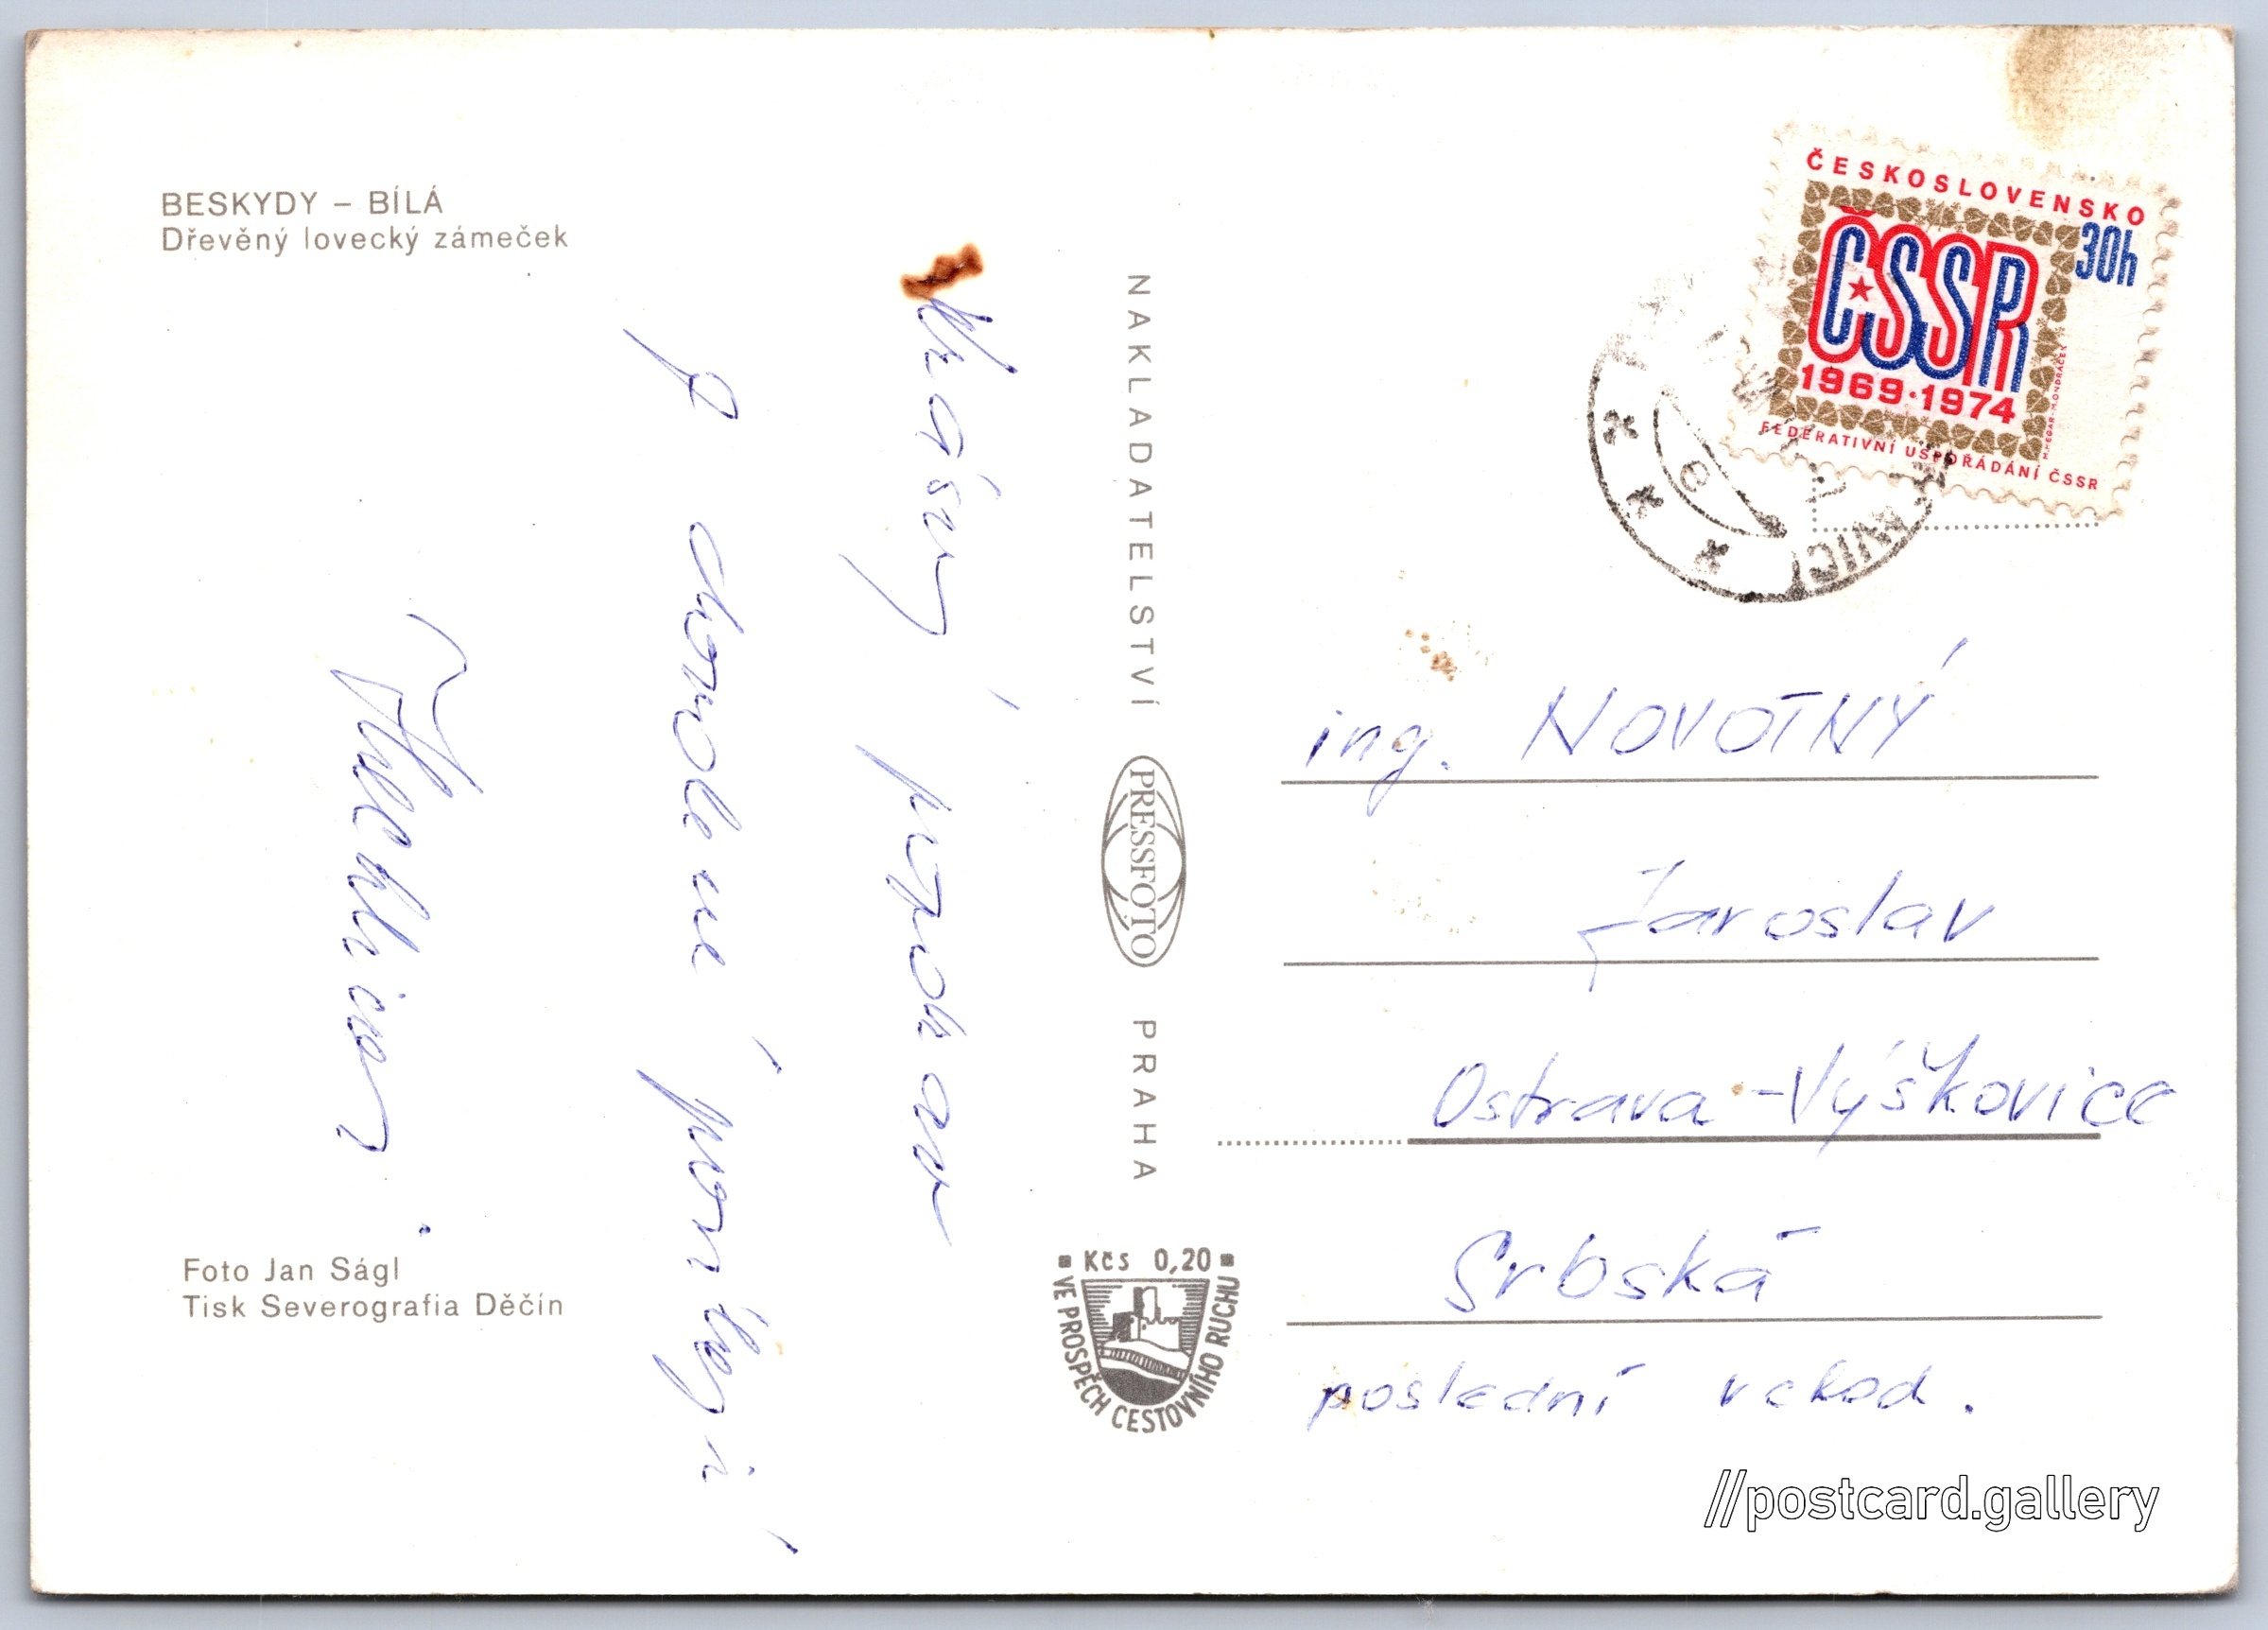 BESKYDY – BÍLÁ
Dřevěný lovecký zámeček
Krásný pozdrav
z dovolené posílají
Foto Jan Ságl
Tisk Severografia Děčín
NAKLADATELSTVÍ PRESSFOTO PRAHA
Kčs 0,20
VE PROSPĚCH CESTOVNÍHO RUCHU
ČESKOSLOVENSKO
30h
ČSSR
1969·1974
FEDERATIVNÍ USPOŘÁDÁNÍ ČSSR
ing. NOVOTNÝ
Jaroslav
Ostrava-Výškovice
Srbská
poslední vchod.
//postcard.gallery